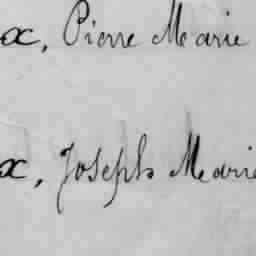 x, Pierre Marie
x, Joseph Marie